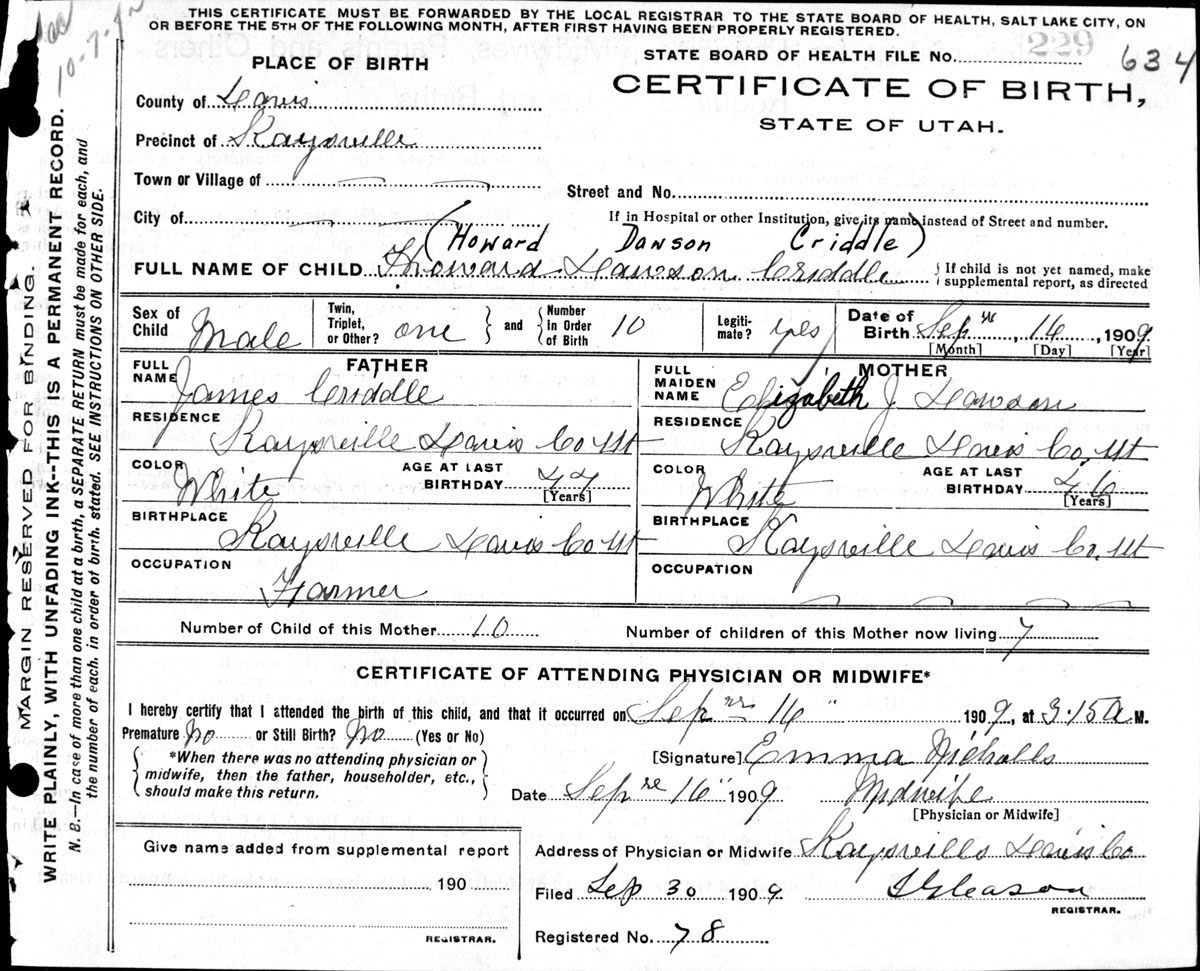 THIS CERTIFICATE MUST BE FORWARDED BY THE LOCAL REGISTRAR TO THE STATE BOARD OF HEALTH, SALT LAKE CITY, ON
OR BEFORE THE 5TH OF THE FOLLOWING MONTH, AFTER FIRST HAVING BEEN PROPERLY REGISTERED.
STATE BOARD OF HEALTH FILE No. 229 634
PLACE OF BIRTH
CERTIFICATE OF BIRTH,
STATE OF UTAH.
County of Davis
Precinct of Kaysville
Town or Village of
Street and No.
City of
If in Hospital or other Institution, give its name instead of Street and number.
(Howard Dawson Criddle)
FULL NAME OF CHILD Howard Dawson Criddle } If child is not yet named, make supplemental report, as directed
Sex of Child Male Twin, Triplet, or Other? one } and { Number in Order of Birth 10 Legiti-mate? yes Date of Birth Sep 14, 1909
[Month] [Day] [Year]
FATHER
FULL NAME James Criddle
RESIDENCE Kaysville Davis Co Ut
COLOR White AGE AT LAST BIRTHDAY
[Years]
BIRTHPLACE Kaysville Davis Co Ut
OCCUPATION Farmer
MOTHER
FULL MAIDEN NAME Elizabeth J Dawson
RESIDENCE Kaysville Davis Co, Ut
COLOR White AGE AT LAST BIRTHDAY 46
[Years]
BIRTHPLACE Kaysville Davis Co, Ut
OCCUPATION
Number of Child of this Mother 10 Number of children of this Mother now living 7
CERTIFICATE OF ATTENDING PHYSICIAN OR MIDWIFE*
I hereby certify that I attended the birth of this child, and that it occurred on Sep 14 1909, at 3.15 a M.
Premature No or Still Birth? No (Yes or No)
*When there was no attending physician or
midwife, then the father, householder, etc.,
should make this return.
[Signature] Emma Nicholls
Date Sep 16 1909 Midwife
[Physician or Midwife]
Address of Physician or Midwife Kaysville Davis Co
Filed Sep 30 1909 Gleason
REGISTRAR.
Registered No. 78
Give name added from supplemental report
190
REGISTRAR.
MARGIN RESERVED FOR BINDING.
WRITE PLAINLY, WITH UNFADING INK--THIS IS A PERMANENT RECORD.
N. B.—In case of more than one child at a birth, a SEPARATE RETURN must be made for each, and
the number of each, in order of birth, stated. SEE INSTRUCTIONS ON OTHER SIDE.